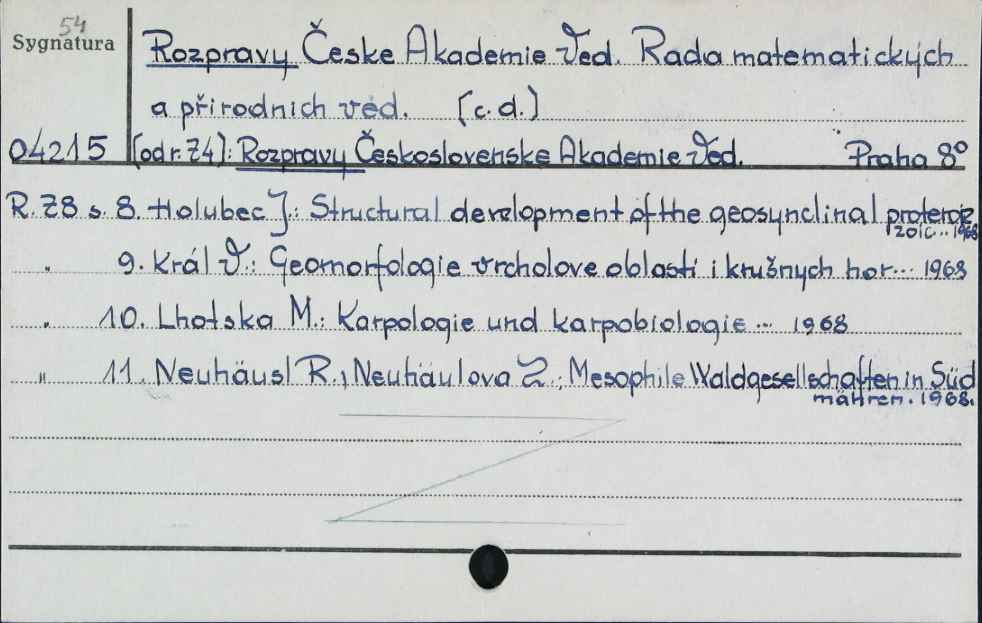 54
Sygnatura
Rozpravy Česke Akademie Ved. Rada matematických
a přirodnich véd. [c.d.]
04215 [od r. 74]: Rozpravy Československe Akademie Ved. Praha 8º
R. 78 s. 8. Holubec J.: Structural development of the geosynclinal proterozoic... 1968
" 9. Král V.: Geomorfologie vrcholove oblasti i krušnych hor... 1968
" 10. Lhotska M.: Karpologie und karpobiologie... 1968
" 11. Neuhäusl R., Neuhäulova Z.: Mesophile Waldgesellschaften in Süd
mähren. 1968.